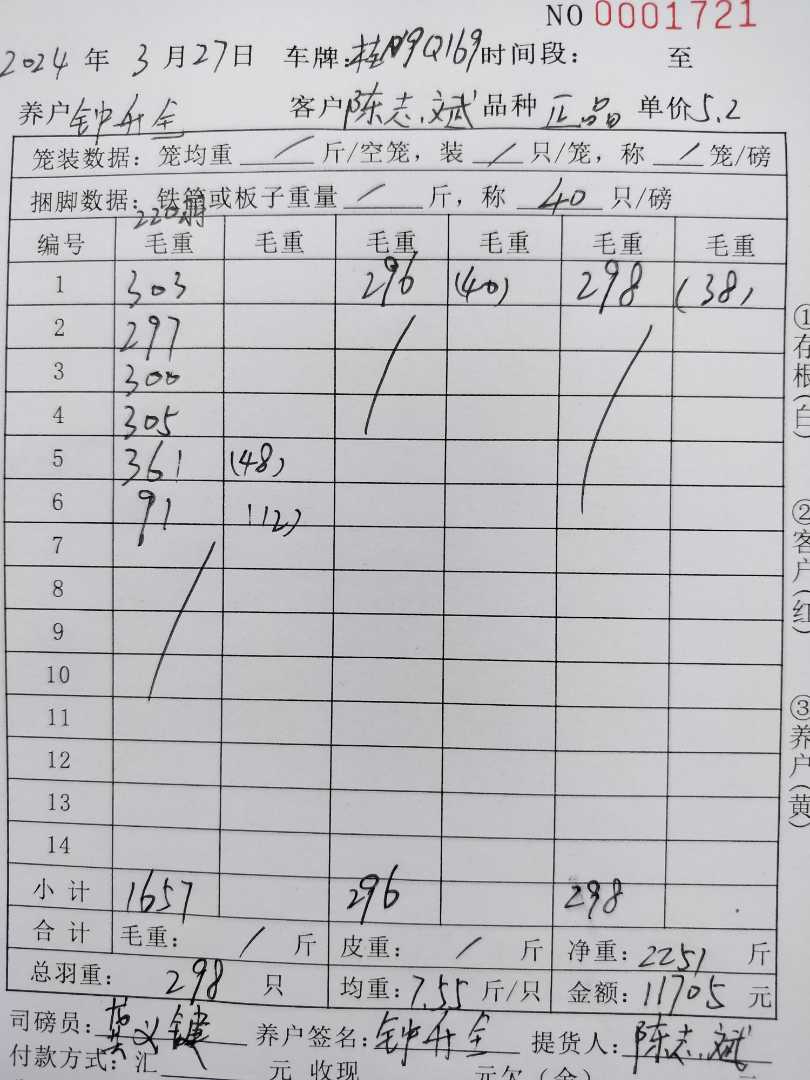 NO 0001721
2024 年 3 月 27 日 车牌: 9Q169 时间段: 至
养户 钟升全 客户 陈志斌 品种 正品 单价 5.2
笼装数据: 笼均重 / 斤/空笼, 装 / 只/笼, 称 / 笼/磅
捆脚数据: 铁筐或板子重量 / 斤, 称 40 只/磅
220
编号 毛重 毛重 毛重 毛重 毛重 毛重
1 303 296 (40) 298 (38)
2 297
3 300
4 305
5 361 (48)
6 91 (12)
7
8
9
10
11
12
13
14
小计 1657 296 298
合计 毛重: / 斤 皮重: / 斤 净重: 2251 斤
总羽重: 298 只 均重: 7.55 斤/只 金额: 11705 元
司磅员: 黄义键 养户签名: 钟升全 提货人: 陈志斌
付款方式: 汇 元 收现 元欠(余) 元
①存根(白) ②客户(红) ③养户(黄)